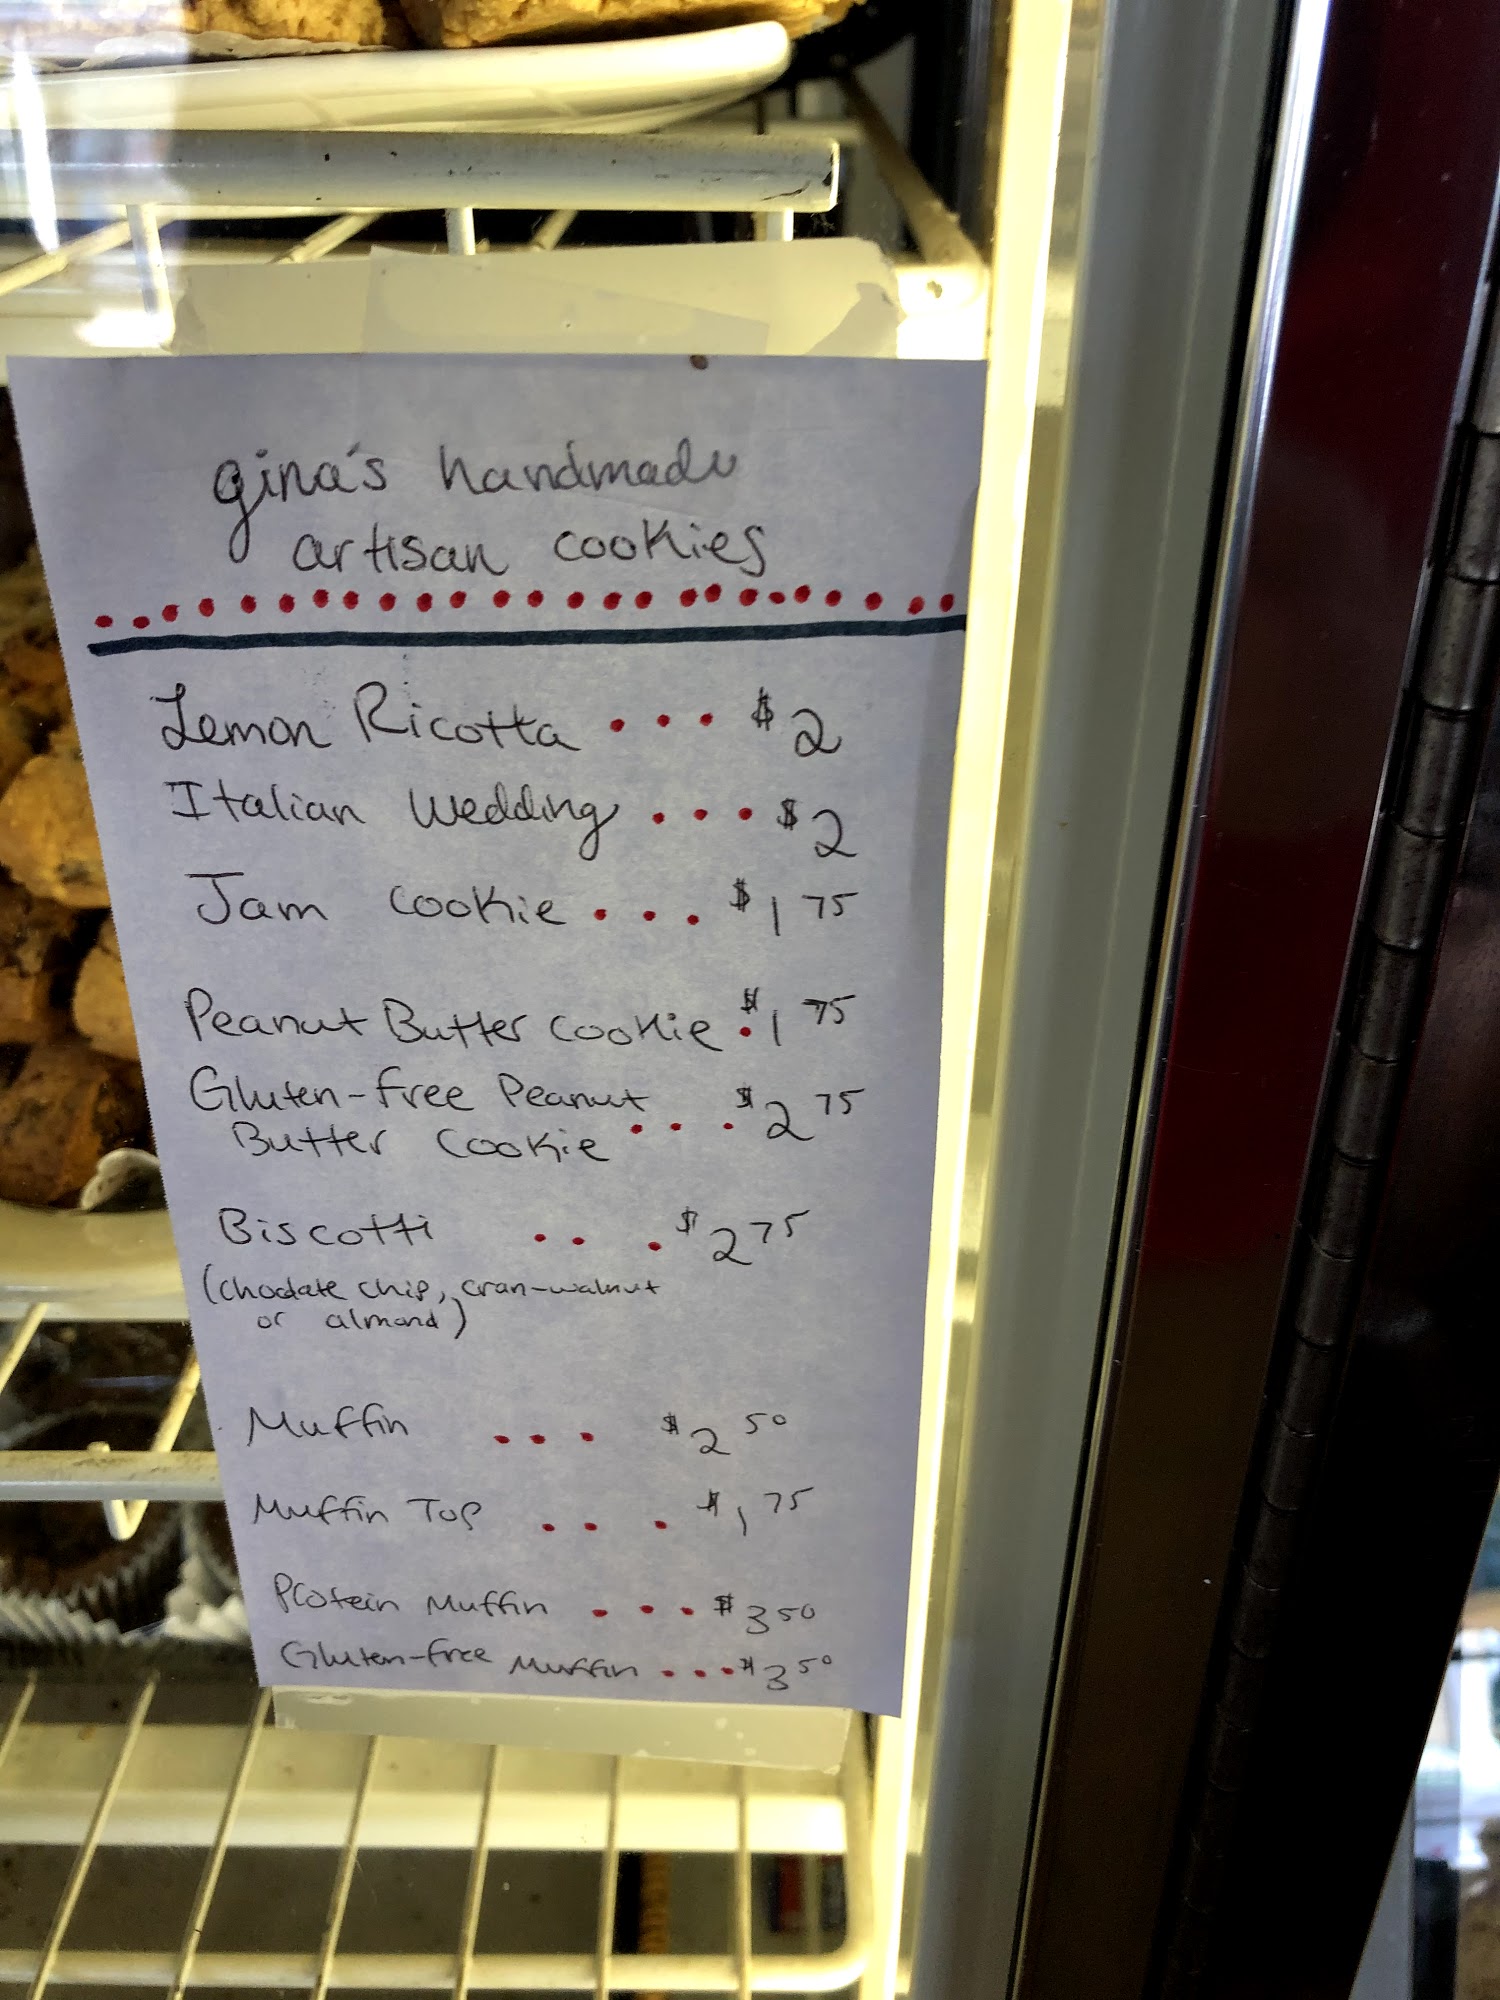 gina's handmade
artisan cookies
Lemon Ricotta ... $2
Italian Wedding ... $2
Jam cookie ... $1 75
Peanut Butter cookie . $1 75
Gluten-free Peanut
Butter Cookie ... $2 75
Biscotti ... $2 75
(choclate chip, cran-walnut
or almond)
Muffin ... $2 50
Muffin Top ... $1 75
Protein Muffin ... $3 50
Gluten-free Muffin ... $3 50